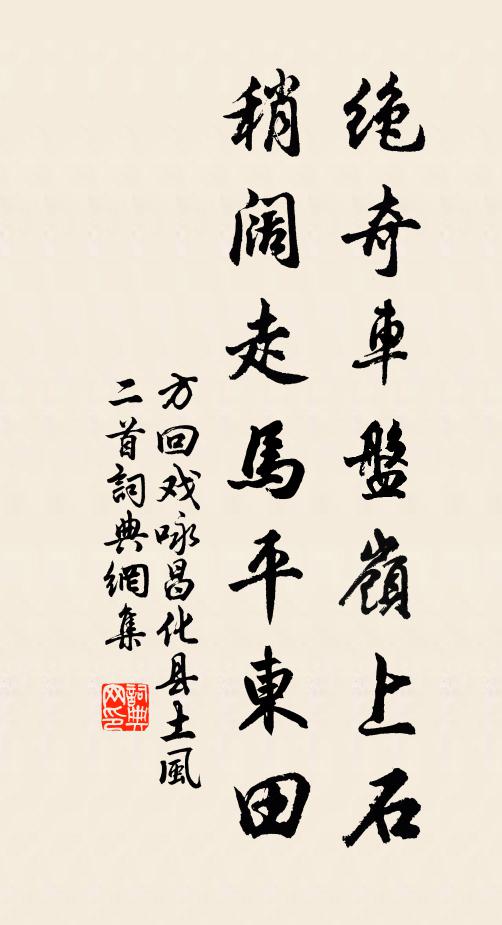 绝奇車盤嶺上石
稍阔走馬平東田
方回戏咏昌化县土風
二首詞典網集
詞典網印